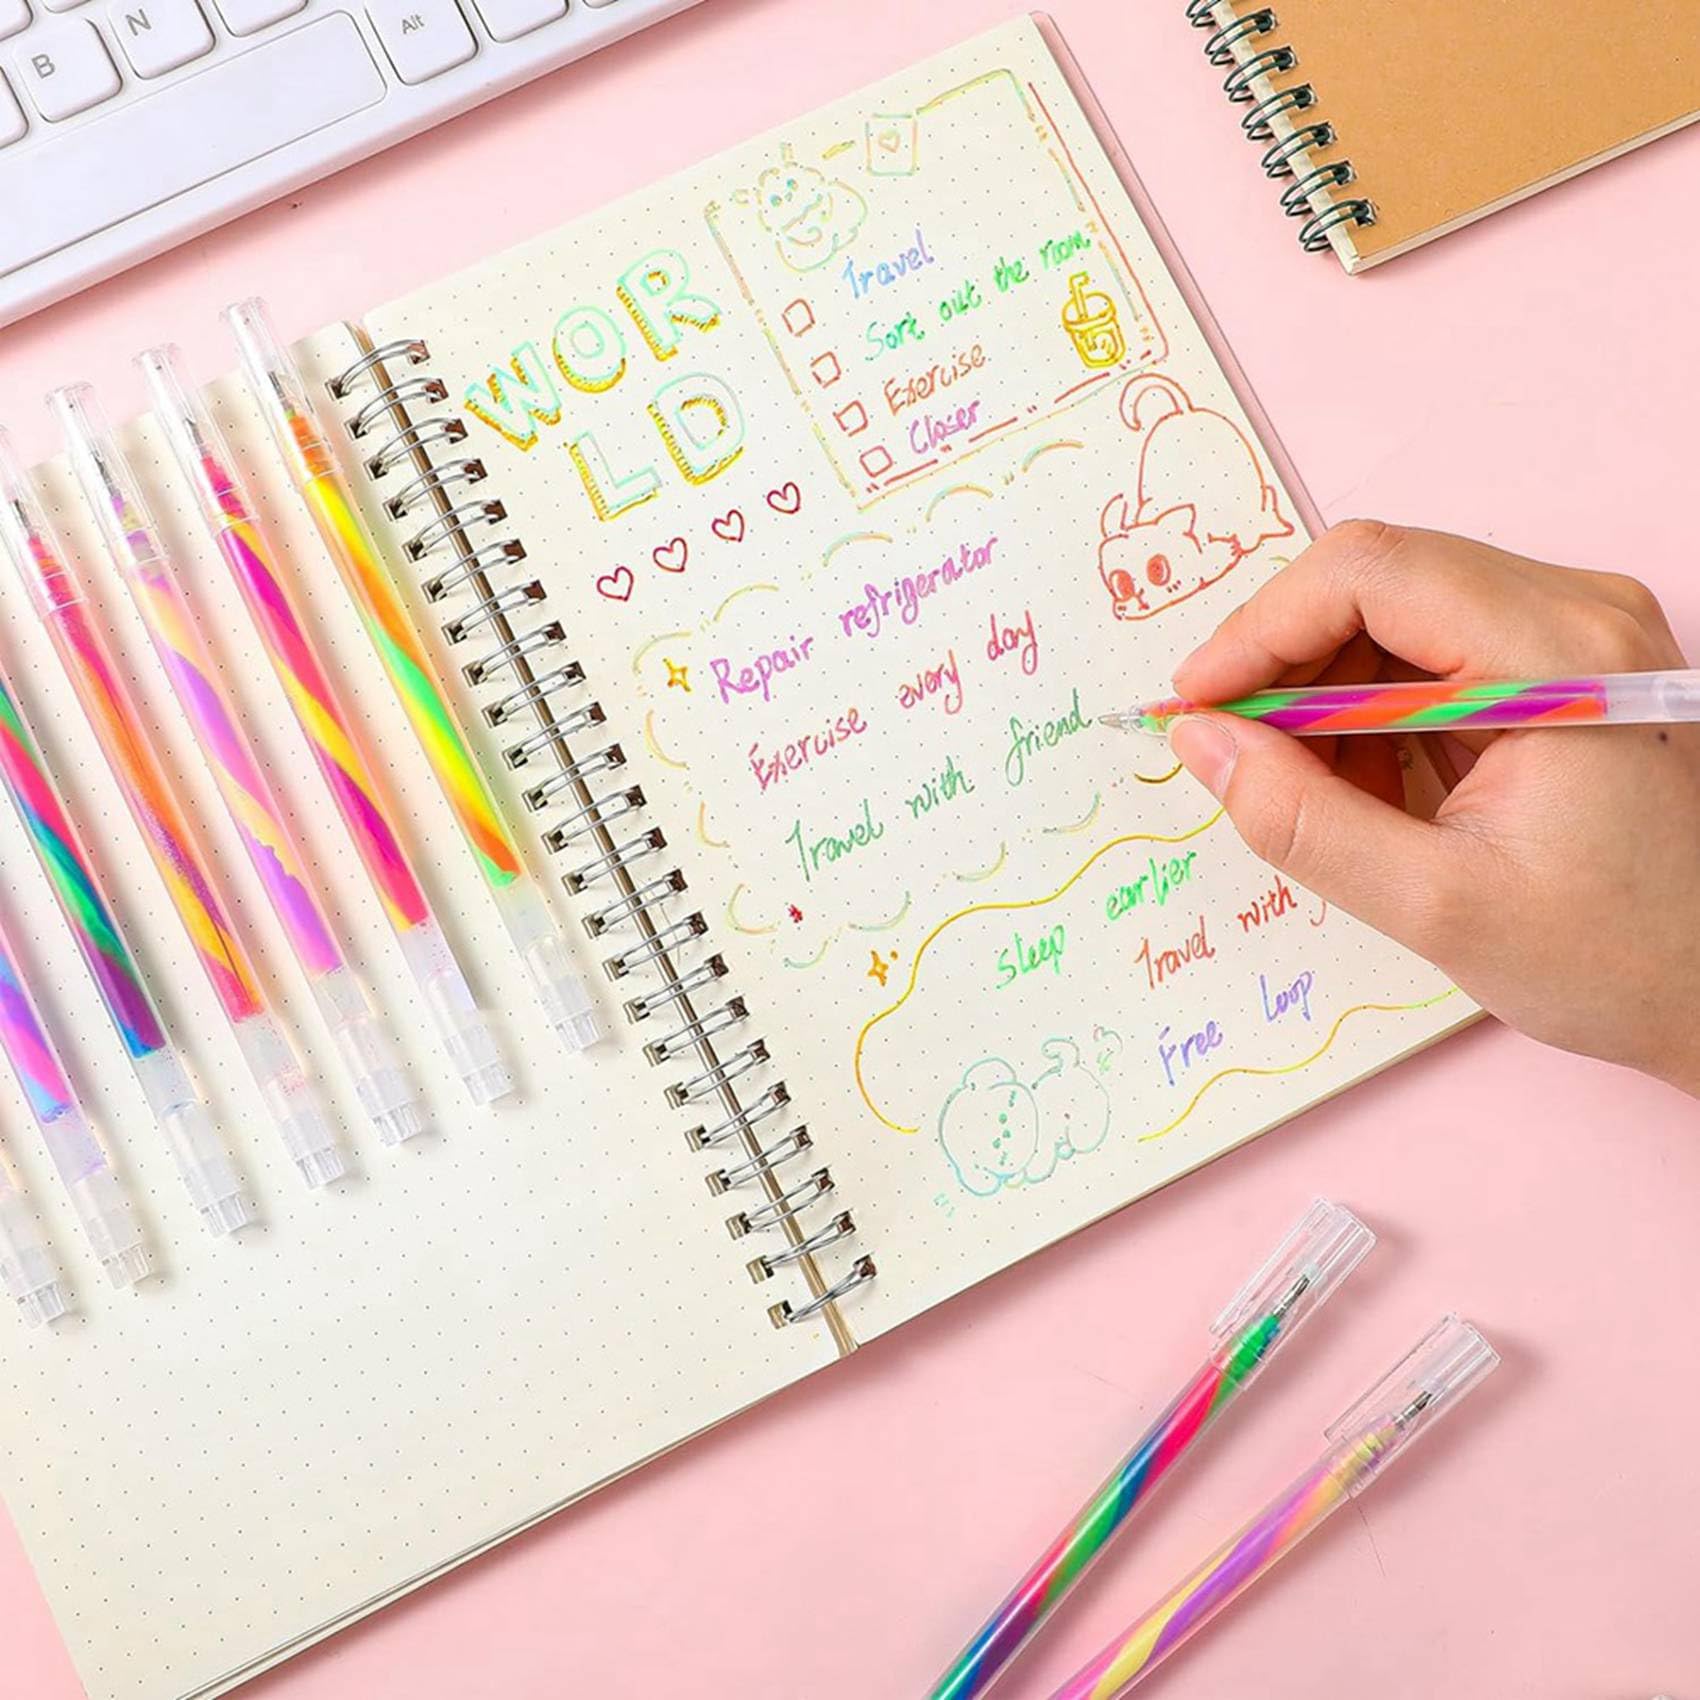 B N Alt
WOR
LD
Travel
Sort out the room
Exercise
Closer
Repair refrigerator
Exercise every day
Travel with friend
sleep earlier
Travel with
Free loop